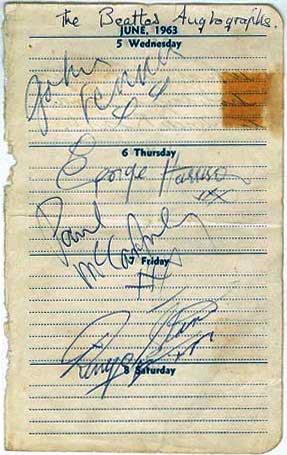 The Beatles Augtographs.
JUNE, 1963
5 Wednesday
John
Lennon
6 Thursday
George Harrison
xx
Paul
McCartney
7 Friday
xxx
Ringo Starr
8 Saturday